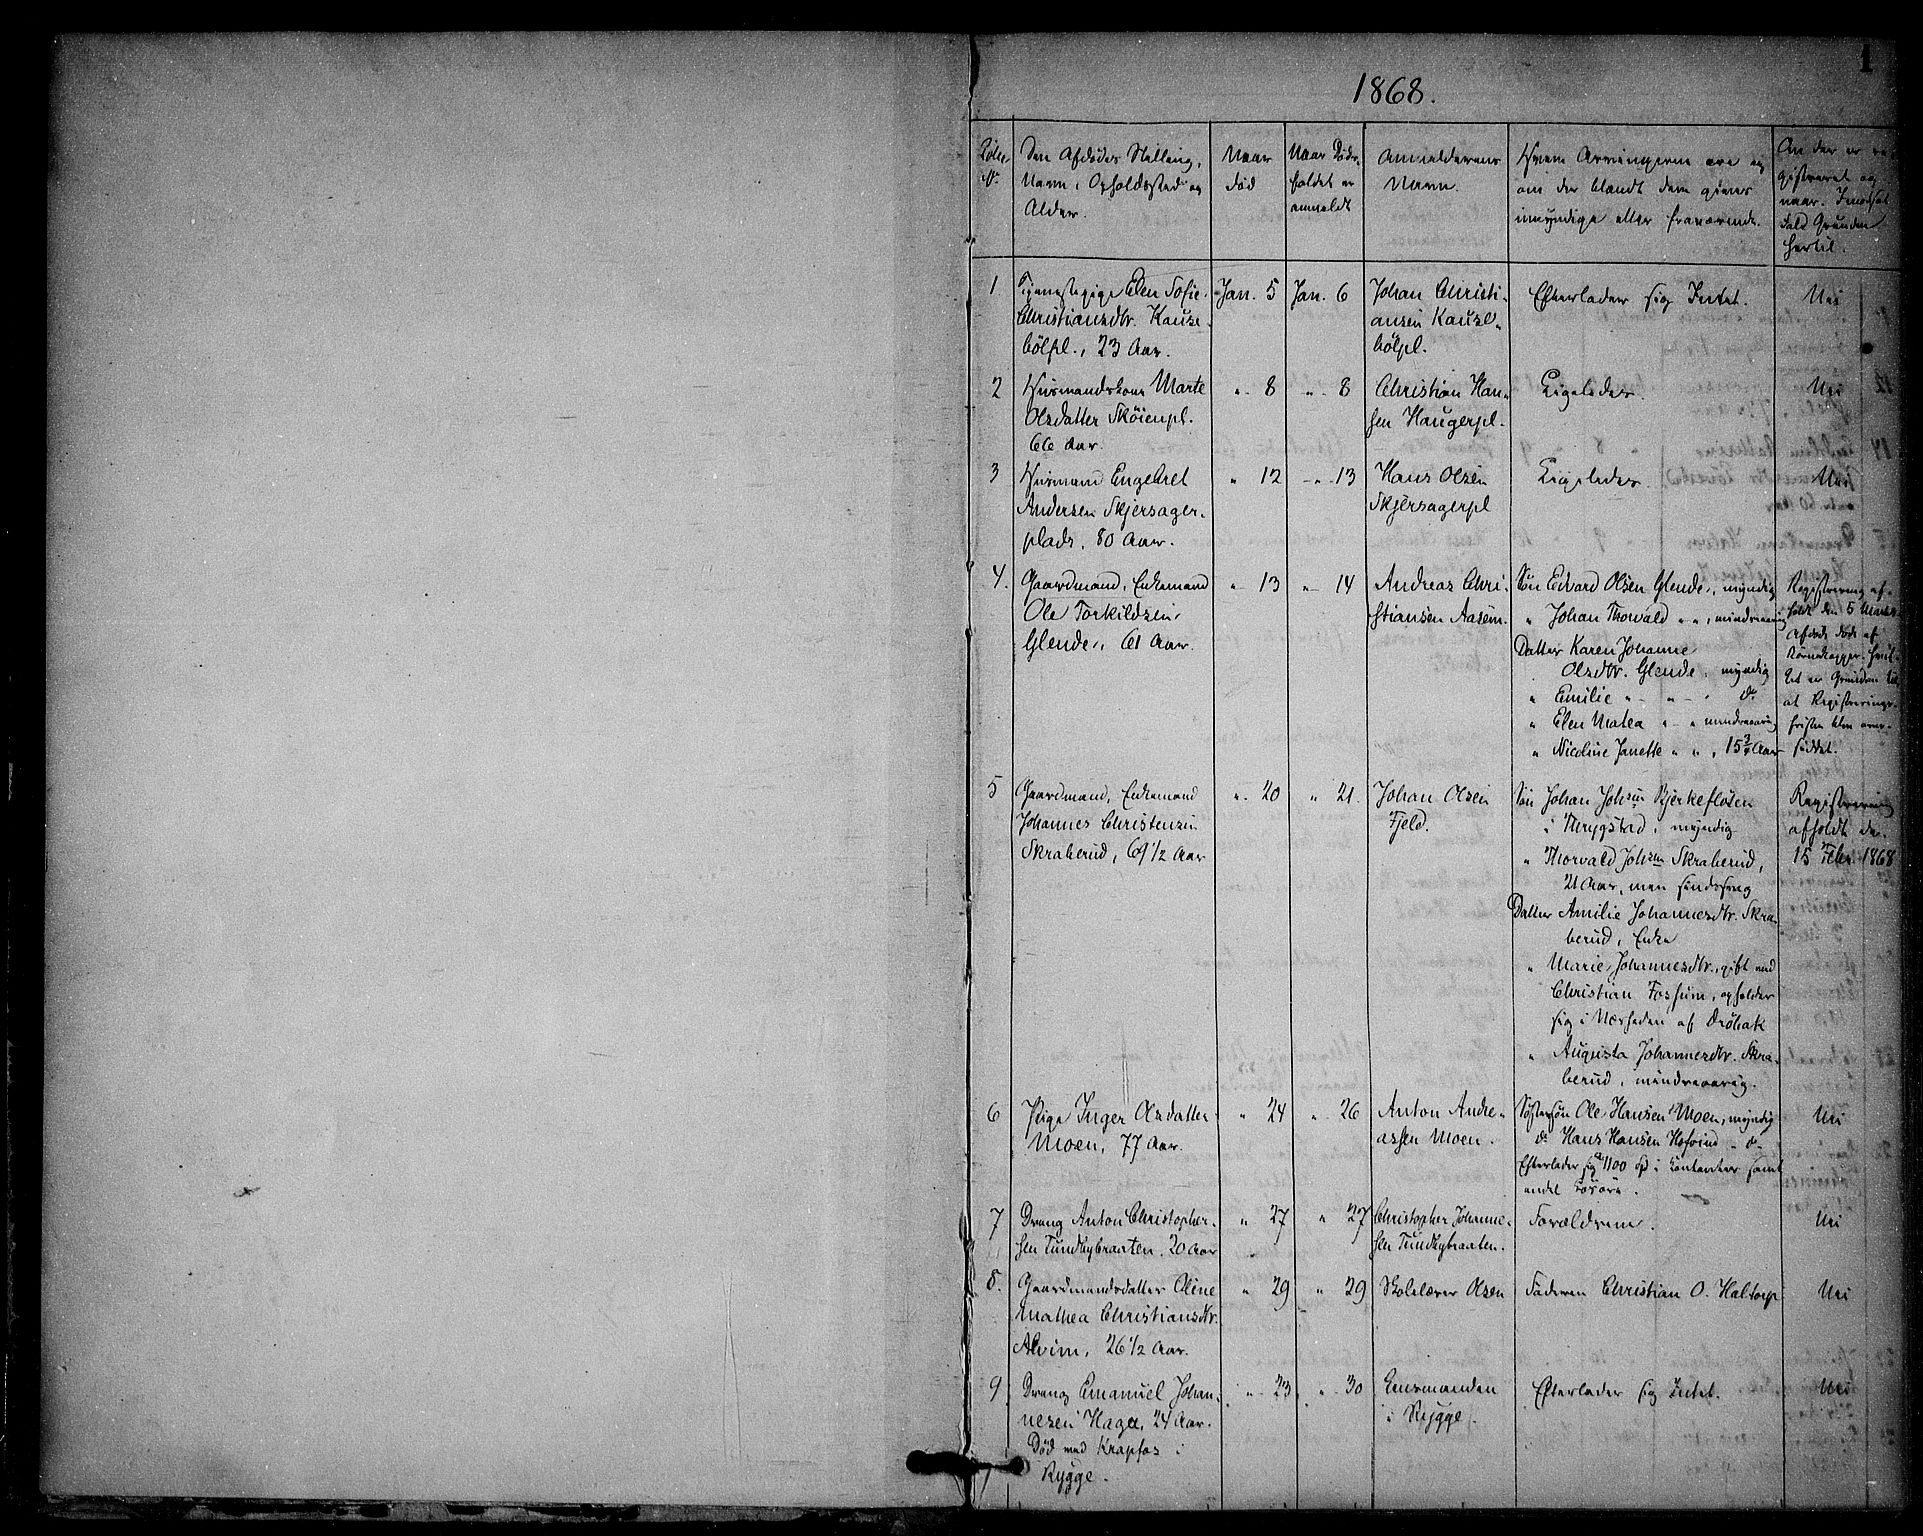 1
1868.
Løbe
No.
Den Afdødes Stilling,
Navn, Opholdssted og
Alder.
Naar
død
Naar Døds-
faldet er
anmeldt
Anmelderens
Navn.
Hvem Arvingerne ere og
om der blandt dem gives
umyndige eller fraværende.
Om der er re-
gistreret og
naar. I modsat
Fald Grunden
hertil.
1
Tjenestepige Elen Sofie
Christiansdtr. Kause-
bølpl., 23 Aar.
Jan. 5
Jan. 6
Johan Christi-
ansen Kause-
bølpl.
Efterlader sig Intet.
Nei
2
Husmandskone Marte
Olsdatter Skøienpl.
66 Aar.
" 8
" 8
Christian Han-
sen Haugerpl.
Ligeledes.
Nei
3
Husmand Engebret
Andersen Skjersager-
plads, 80 Aar.
" 12
" 13
Hans Olsen
Skjersagerpl
Ligeledes.
Nei
4.
Gaardmand, Enkemand
Ole Torkildsen
Glende, 61 Aar.
" 13
" 14
Andreas Chri-
stiansen Aasen.
Søn Edvard Olsen Glende, myndig
" Johan Thorvald " ", mindreaarig
Datter Karen Johanne
Olsdtr. Glende, myndig
" Emilie " " do
" Elen Matea " " mindreaarig
" Nicoline Janette " ", 15 3/4 Aar
Registrering af-
holdt den 5 Marts
Afdøde døde af
Børnekopper, hvil-
ket er Grunden til
at Registrerings-
fristen blev over-
siddet.
5
Gaardmand, Enkemand
Johannes Christensen
Skraberud, 69 1/2 Aar
" 20
" 21.
Johan Olsen
Fjeld.
Søn Johan Johsen Bjerkefloten
i Thrygstad, myndig
" Thorvald Johsen Skraberud,
21 Aar, men sindssvag
Datter Amilie Johannesdtr. Skra-
berud, Enke
" Marie Johannesdtr., gift med
Christian Fossum, opholder
sig i Nærheden af Drøbak
" Augusta Johannesdtr. Skra-
berud, mindreaarig.
Registrering
afholdt de.
15 Febr. 1868
6
Pige Inger Olsdatter
Moen, 77 Aar.
" 24
" 26
Anton Andre-
assen Moen.
Søstersøn Ole Hansen Moen, myndig
do Hans Hansen Hofvind - do -
Efterlader sig 1100 Spd i Contanter samt
endel Løsøre.
Nei
7
Dreng Anton Christopher-
sen Tundbybraaten, 20 Aar
" 27
" 27
Christopher Johanne-
sen Tundbybraaten.
Forældrene.
Nei
8.
Gaardmandsdatter Oline
Mathea Christiansdtr.
Alvim, 26 1/2 Aar.
" 29
" 29
Skolelærer Olsen
Faderen Christian O. Haltorp
Nei
9
Dreng Emanuel Johan-
nesen Haga, 24 Aar.
Død ved Krapfos i
Rygge.
" 23
" 30
Lensmanden
i Rygge.
Efterlader sig Intet.
Nei